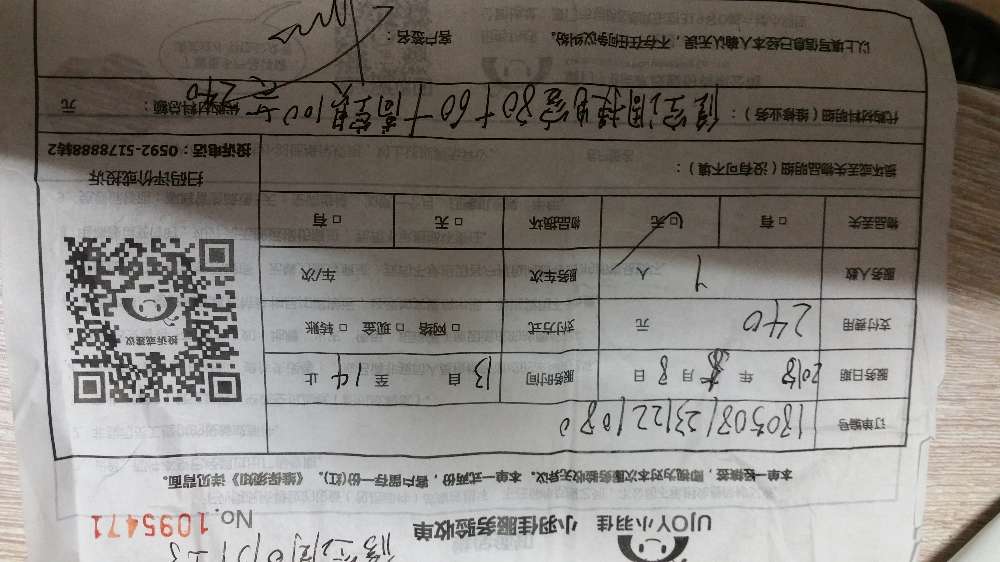 UJOY小羽佳 小羽佳服务验收单
No. 1095471
本单一经签署，即视为对本次服务验收无异议。本单一式两份，客户留存一份(红)。《维保须知》详见背面。
订单编号
服务日期 2018 年 月 8 日 服务时间 13 自 至 14 止
支付费用 240 元 对付方式 □ 网络 □ 现金 □ 转账
服务人数 1 人 服务车次 车/次
物品丢失 □ 有 □ 无 物品损坏 □ 无 □ 有
投诉或建议
扫码评价或投诉
投诉电话：0592-5178888转2
损坏或丢失物品明细（没有可不填）：
代购材料明细（维修业务）：修空调换电容80+60+高空费100元=240 代购材料总额： 元
以上填写信息已经本人确认无误，不存在任何争议纠纷。 客户签名：